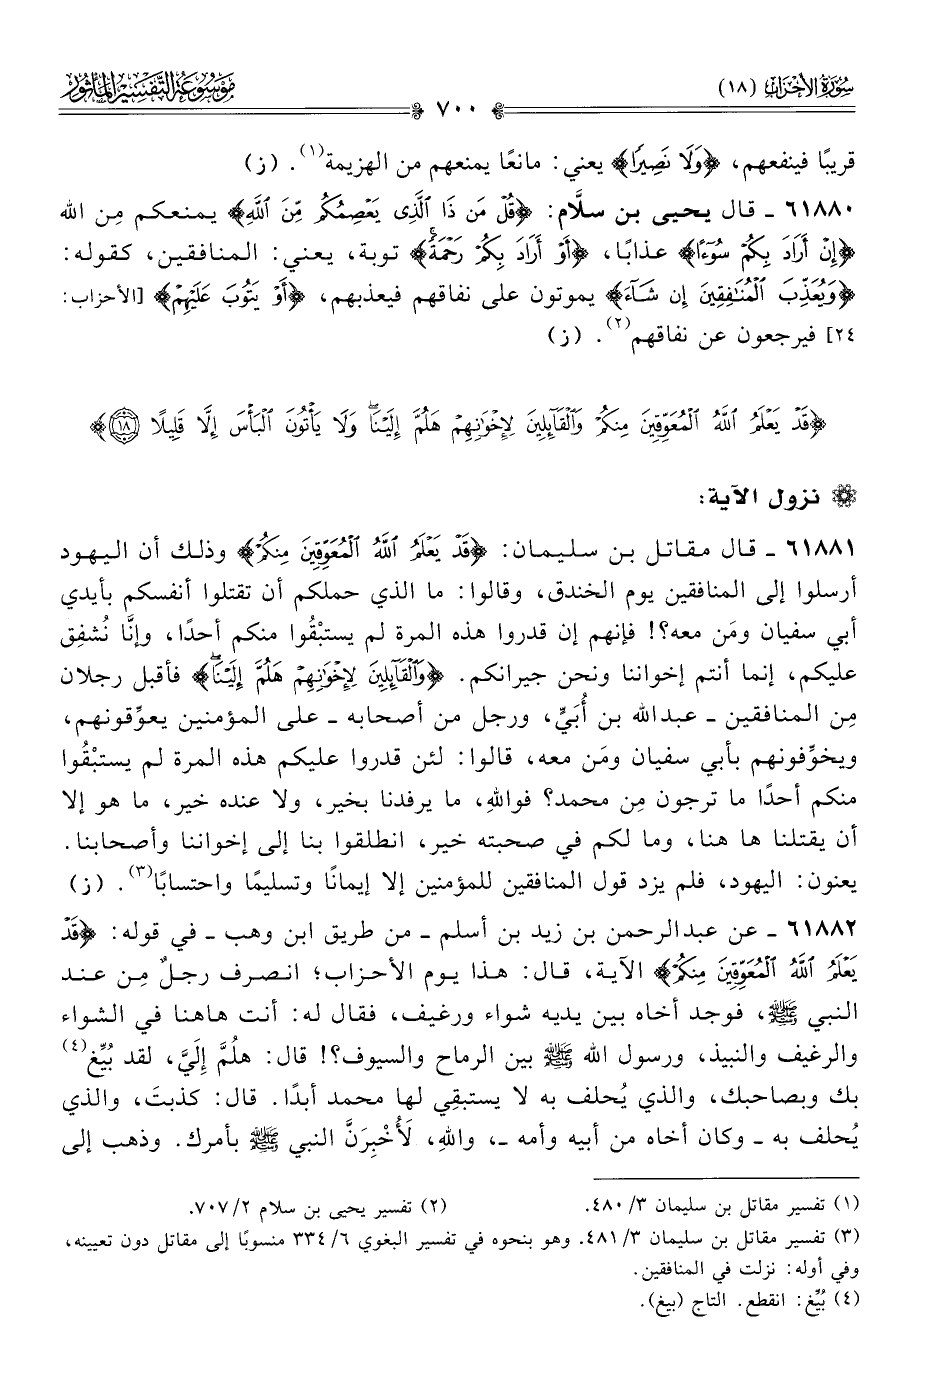 سُورَةُ الأَحْزَابِ (١٨)
٧٠٠
مَوْسُوعَةُ التَّفْسِيرِ المَأْثُورِ
قريبًا فينفعهم، ﴿وَلَا نَصِيرًا﴾ يعني: مانعًا يمنعهم من الهزيمة(١). (ز)
٦١٨٨٠ ـ قال يحيى بن سلَّام: ﴿قُلْ مَن ذَا ٱلَّذِى يَعْصِمُكُم مِّنَ ٱللَّهِ﴾ يمنعكم مِن الله
﴿إِنْ أَرَادَ بِكُمْ سُوٓءًا﴾ عذابًا، ﴿أَوْ أَرَادَ بِكُمْ رَحْمَةً﴾ توبة، يعني: المنافقين، كقوله:
﴿وَيُعَذِّبَ ٱلْمُنَٰفِقِينَ إِن شَآءَ﴾ يموتون على نفاقهم فيعذبهم، ﴿أَوْ يَتُوبَ عَلَيْهِمْ﴾ [الأحزاب:
٢٤] فيرجعون عن نفاقهم(٢). (ز)
﴿قَدْ يَعْلَمُ ٱللَّهُ ٱلْمُعَوِّقِينَ مِنكُمْ وَٱلْقَآئِلِينَ لِإِخْوَٰنِهِمْ هَلُمَّ إِلَيْنَا ۖ وَلَا يَأْتُونَ ٱلْبَأْسَ إِلَّا قَلِيلًا ١٨﴾
نزول الآية:
٦١٨٨١ ـ قال مقاتل بن سليمان: ﴿قَدْ يَعْلَمُ ٱللَّهُ ٱلْمُعَوِّقِينَ مِنكُمْ﴾ وذلك أن اليهود
أرسلوا إلى المنافقين يوم الخندق، وقالوا: ما الذي حملكم أن تقتلوا أنفسكم بأيدي
أبي سفيان ومَن معه؟! فإنهم إن قدروا هذه المرة لم يستبْقُوا منكم أحدًا، وإنَّا نُشفِق
عليكم، إنما أنتم إخواننا ونحن جيرانكم. ﴿وَٱلْقَآئِلِينَ لِإِخْوَٰنِهِمْ هَلُمَّ إِلَيْنَا ۖ﴾ فأقبل رجلان
مِن المنافقين ـ عبدالله بن أُبَيٍّ، ورجل من أصحابه ـ على المؤمنين يعوِّقونهم،
ويخوِّفونهم بأبي سفيان ومَن معه، قالوا: لئن قدروا عليكم هذه المرة لم يستبْقُوا
منكم أحدًا ما ترجون مِن محمد؟ فواللهِ، ما يرفدنا بخير، ولا عنده خير، ما هو إلا
أن يقتلنا ها هنا، وما لكم في صحبته خير، انطلقوا بنا إلى إخواننا وأصحابنا.
يعنون: اليهود، فلم يزد قول المنافقين للمؤمنين إلا إيمانًا وتسليمًا واحتسابًا(٣). (ز)
٦١٨٨٢ ـ عن عبدالرحمن بن زيد بن أسلم ـ من طريق ابن وهب ـ في قوله: ﴿قَدْ
يَعْلَمُ ٱللَّهُ ٱلْمُعَوِّقِينَ مِنكُمْ﴾ الآية، قال: هذا يوم الأحزاب؛ انصرف رجلٌ مِن عند
النبي ﷺ، فوجد أخاه بين يديه شواء ورغيف، فقال له: أنت هاهنا في الشواء
والرغيف والنبيذ، ورسول الله ﷺ بين الرماح والسيوف؟! قال: هلُمَّ إِلَيَّ، لقد بُيِّغ(٤)
بك وبصاحبك، والذي يُحلف به لا يستبقِي لها محمد أبدًا. قال: كذبتَ، والذي
يُحلف به ـ وكان أخاه من أبيه وأمه ـ، واللهِ، لَأُخْبِرَنَّ النبي ﷺ بأمرك. وذهب إلى
(١) تفسير مقاتل بن سليمان ٣/ ٤٨٠.
(٢) تفسير يحيى بن سلام ٢/ ٧٠٧.
(٣) تفسير مقاتل بن سليمان ٣/ ٤٨١. وهو بنحوه في تفسير البغوي ٦/ ٣٣٤ منسوبًا إلى مقاتل دون تعيينه،
وفي أوله: نزلت في المنافقين.
(٤) بُيِّغ: انقطع. التاج (بيغ).